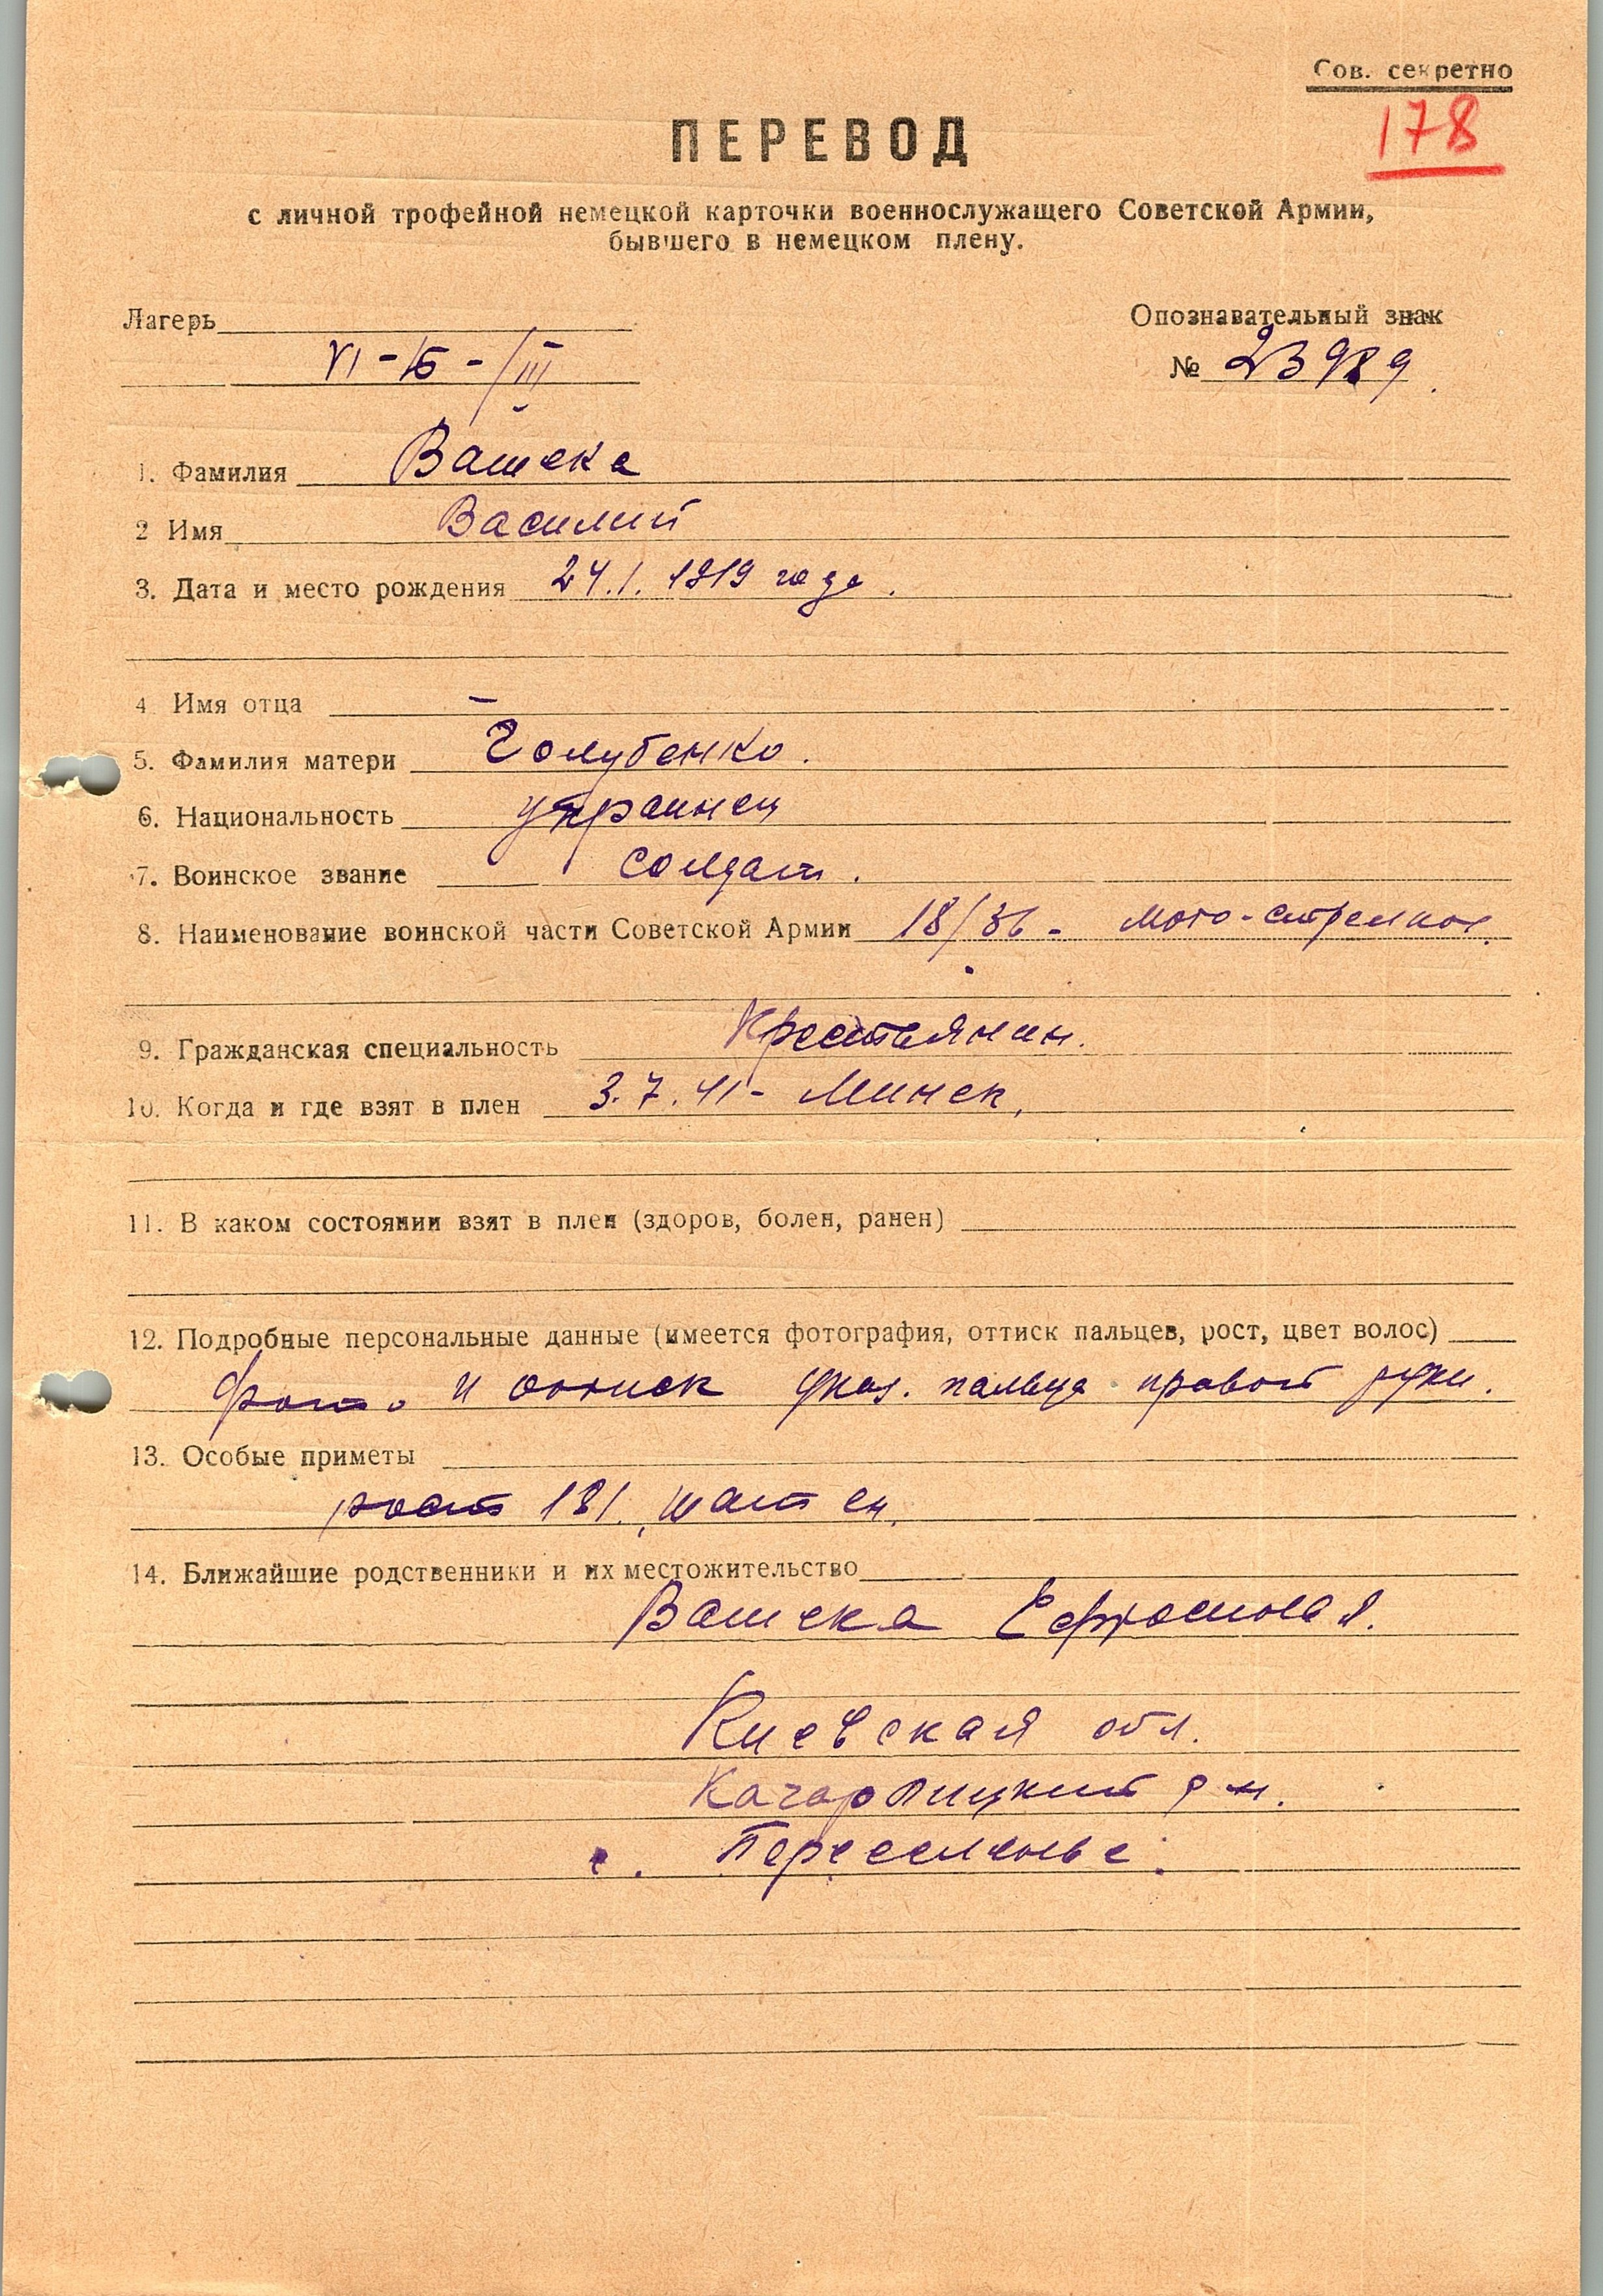 Сов. секретно
178
ПЕРЕВОД
с личной трофейной немецкой карточки военнослужащего Советской Армии,
бывшего в немецком плену.
Лагерь
Опознавательный знак
VI-Б-/III
№ 23989
1. Фамилия Вашека
2 Имя Василий
3. Дата и место рождения 24.1.1919 года.
4 Имя отца —
5. Фамилия матери Голубенко.
6. Национальность украинец
7. Воинское звание солдат.
8. Наименование воинской части Советской Армии 18/36 - мото-стрелков.
9. Гражданская специальность Крестьянин.
10. Когда и где взят в плен 3.7.41 - Минск.
11. В каком состоянии взят в плен (здоров, болен, ранен)
12. Подробные персональные данные (имеется фотография, оттиск пальцев, рост, цвет волос)
Фото и оттиск указ. пальца правой руки.
13. Особые приметы
рост 181, шатен.
14. Ближайшие родственники и их местожительство
Вашека
Киевская обл.
р-н.
с. Переселенье.